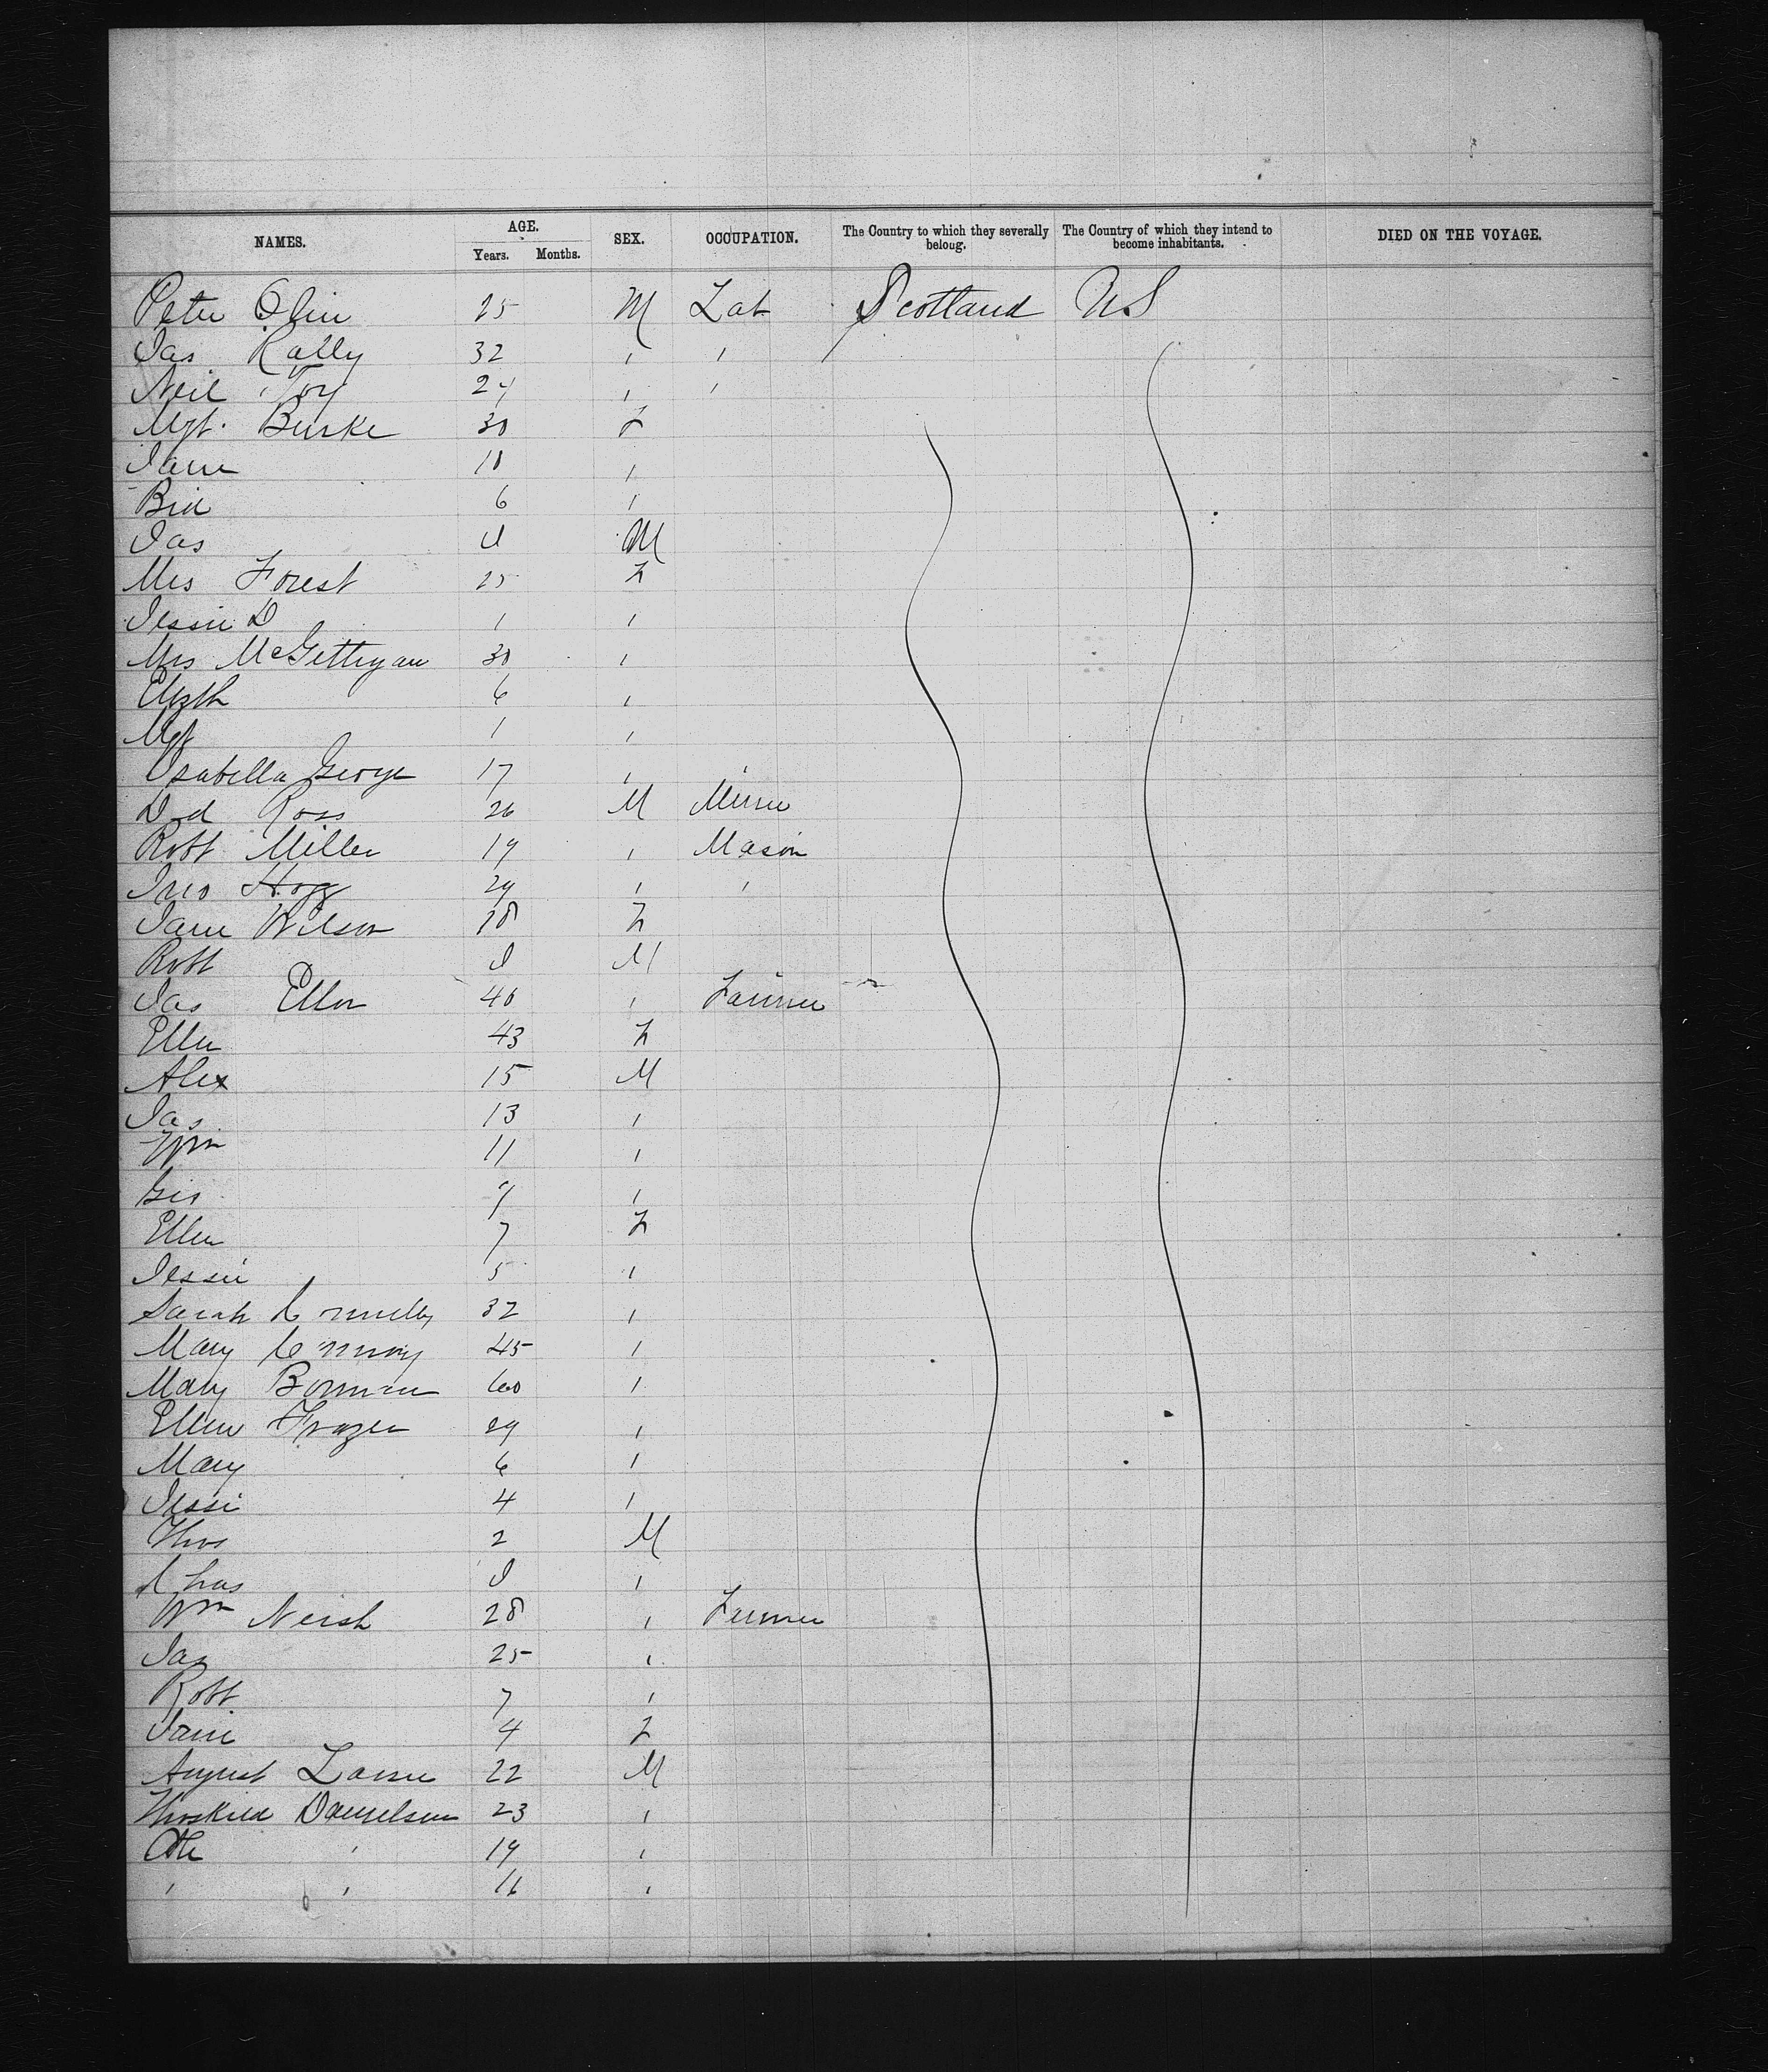 NAMES. AGE. SEX. OCCUPATION. The Country to which they severally belong. The Country of which they intend to become inhabitants. DIED ON THE VOYAGE.
Years. Months.
Peter 25 M Lab Scotland US
Jas Rally 32 " "
Neil Toy 24 " "
Mgt. Burke 30 F
Jane 10 "
Brid 6 "
Jas M
Mrs Forest 25 F
Jessie D 1 "
Mrs McGettigan 30 "
Elizth 6 "
Mgt 1 "
Isabella George 17 "
Dd Ross 26 M Miner
Robt Miller 19 " Mason
Jno Hogg 29 " "
Jane Wilson 18 F
Robt M
Jas Ellor 40 " Farmer
Ellen 43 F
Alex 15 M
Jas. 13 "
Wm 11 "
Geo 9 "
Ellen 7 F
Jessie 5 "
Sarah Connelly 32 "
Mary Conway 45 "
Mary Bowman 60 "
Ellen Frazer 29 "
Mary 6 "
Jessie 4 "
Thos 2 M
Chas "
Wm Neish 28 " Farmer
Jas 25 "
Robt 7 "
Jane 4 F
August 22 M
Danielsen 23 "
Ole " 19 "
" " 16 "